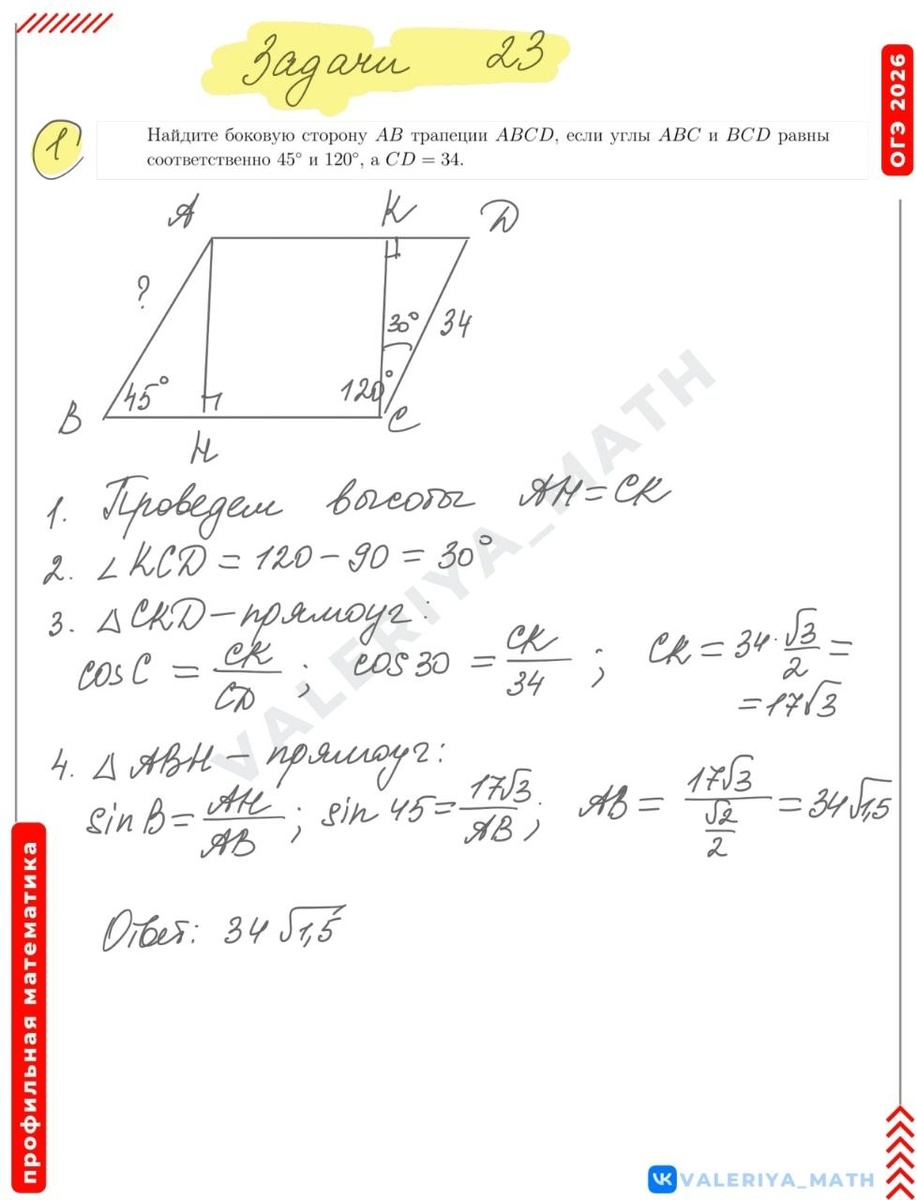 Задачи 23
ОГЭ 2026
1
Найдите боковую сторону AB трапеции ABCD, если углы ABC и BCD равны
соответственно 45° и 120°, а CD = 34.
A K D
?
30° 34
45° 120°
B C
H
1. Проведем высоты AH=CK
2. ∠KCD = 120 − 90 = 30°
3. △CKD − прямоуг:
cos C = CK/CD ; cos 30 = CK/34 ; CK = 34 · √3/2 =
= 17√3
4. △ABH − прямоуг:
sin B = AH/AB ; sin 45 = 17√3/AB ; AB = 17√3/(√2/2) = 34√1,5
Ответ: 34√1,5
VALERIYA_MATH
профильная математика
VALERIYA_MATH